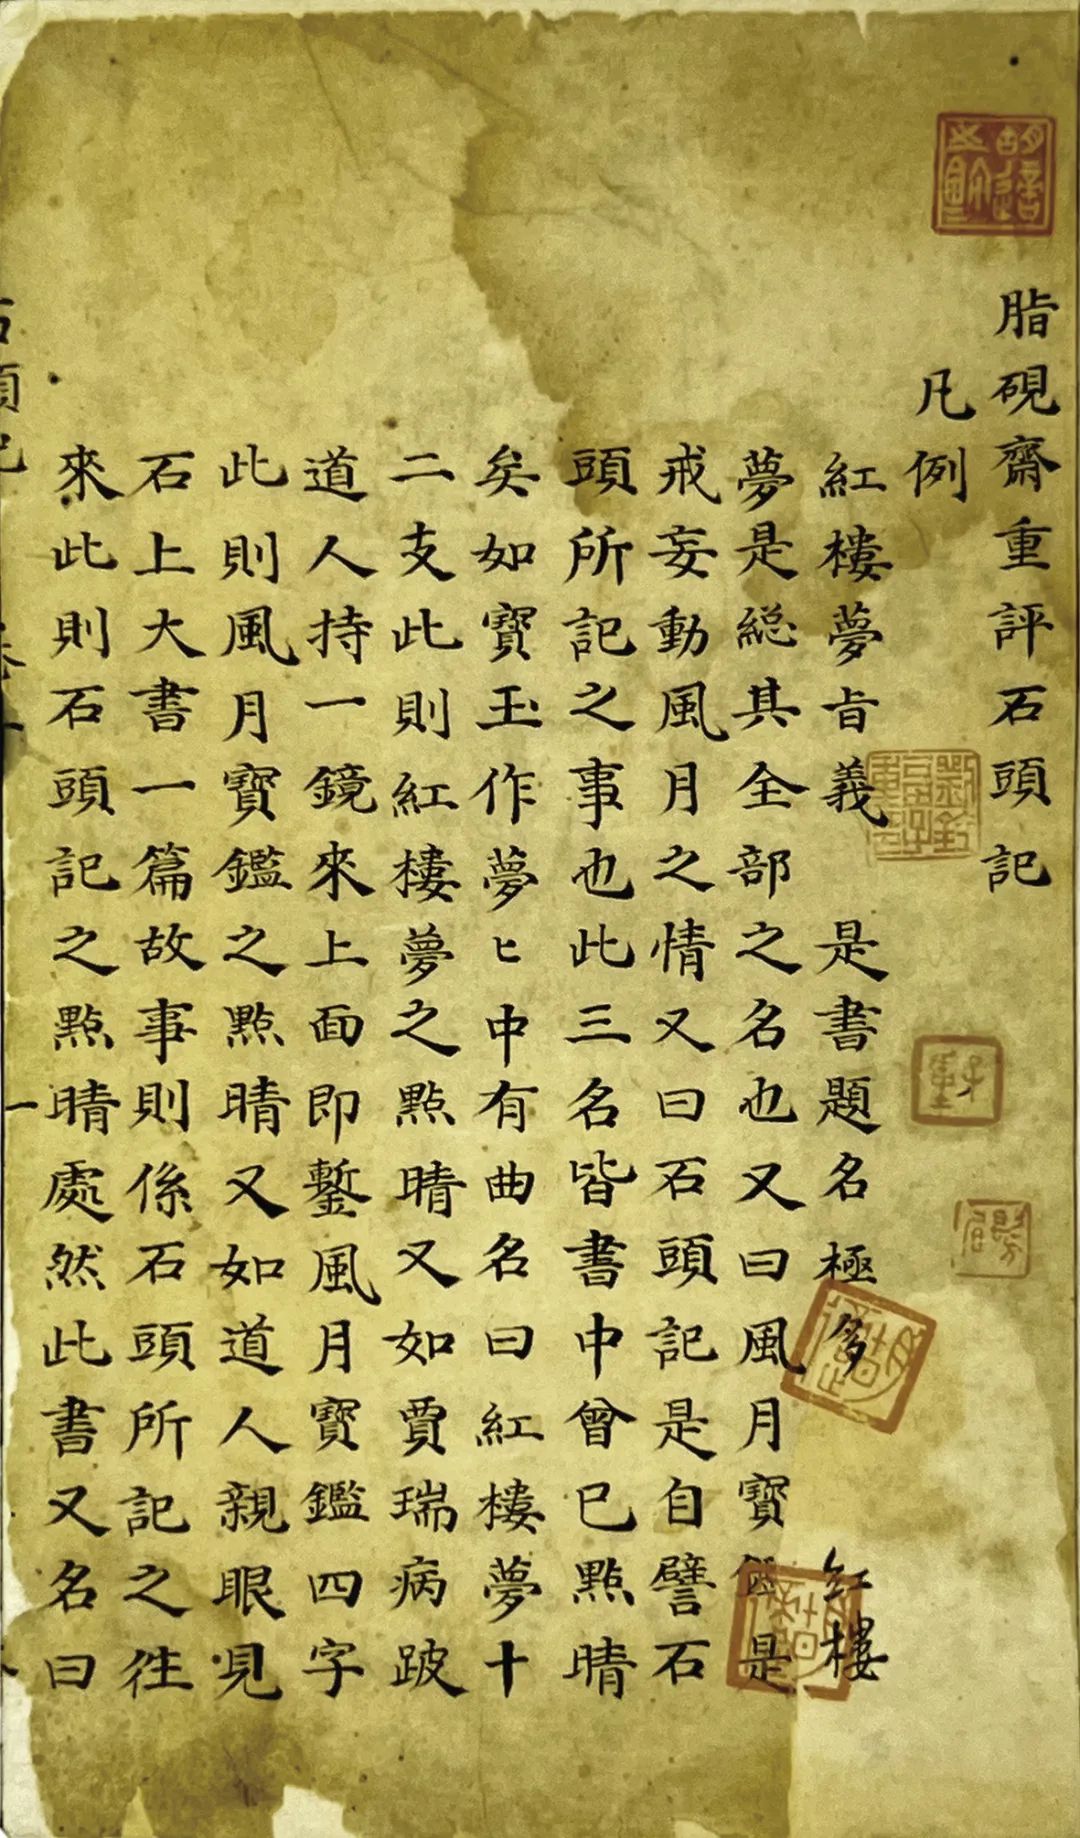 脂硯齋重評石頭記
凡例
紅樓夢旨義 是書題名極多 紅樓
夢是総其全部之名也又曰風月寶 是
戒妄動風月之情又曰石頭記是自譬石
頭所記之事也此三名皆書中曾已點晴
矣如寶玉作夢〻中有曲名曰紅樓夢十
二支此則紅樓夢之點晴又如賈瑞病跛
道人持一鏡來上面即鏨風月寶鑑四字
此則風月寶鑑之點晴又如道人親眼見
石上大書一篇故事則係石頭所記之徃
來此則石頭記之點晴處然此書又名曰